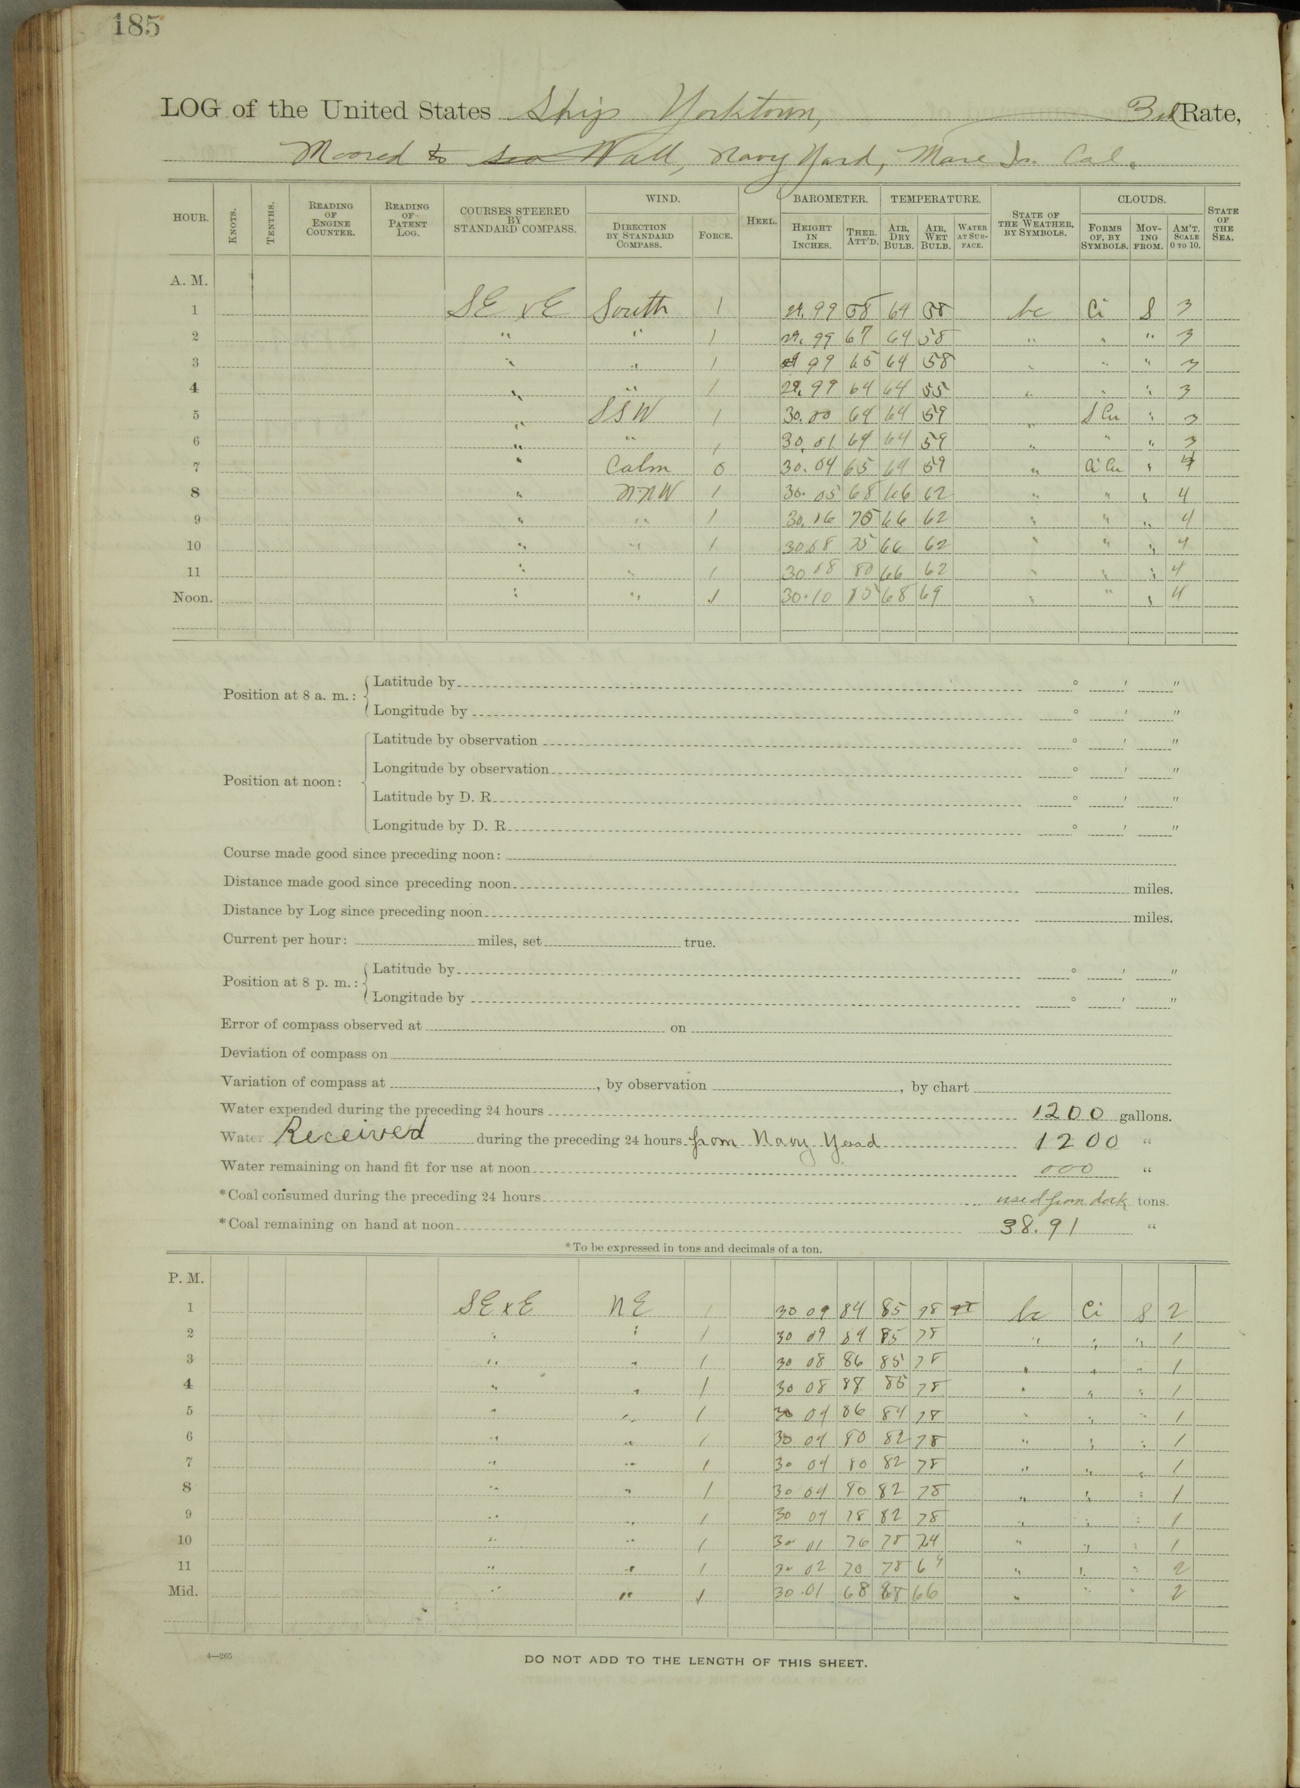 185
LOG of the United States Ship Yorktown, 3rd Rate,
Moored to Sea Wall, Navy Yard, Mare Is. Cal.
HOUR. KNOTS. TENTHS. READING OF ENGINE COUNTER. READING OF PATENT LOG. COURSES STEERED BY STANDARD COMPASS. WIND. DIRECTION BY STANDARD COMPASS. FORCE. HEEL. BAROMETER. HEIGHT IN INCHES. THER. ATT'D. TEMPERATURE. AIR, DRY BULB. AIR, WET BULB. WATER AT SUR-FACE. STATE OF THE WEATHER, BY SYMBOLS. CLOUDS. FORMS OF, BY SYMBOLS. MOV-ING FROM. AM'T. SCALE 0 TO 10. STATE OF THE SEA.
A. M.
1 SE x E South 1 29.99 64 bc Ci S 3
2 " " 1 29.99 67 64 58 " " " 3
3 " " 1 29 99 65 64 58 " " " 3
4 " " 1 29.99 64 64 " " " 3
5 " SSW 1 30.00 64 64 59 " S Cu " 3
6 " " 1 30.01 64 64 59 " " " 3
7 " Calm 0 30.04 65 64 59 " Ci Cu " 4
8 " NNW 1 30.05 68 66 62 " " " 4
9 " " 1 30.06 75 66 62 " " " 4
10 " " 1 30.08 75 66 62 " " " 4
11 " " 1 30 08 80 66 62 " " " 4
Noon. " " 1 30.10 85 68 69 " " " 4
Position at 8 a. m.: Latitude by ° ′ ″
Longitude by ° ′ ″
Position at noon: Latitude by observation ° ′ ″
Longitude by observation ° ′ ″
Latitude by D. R. ° ′ ″
Longitude by D. R. ° ′ ″
Course made good since preceding noon:
Distance made good since preceding noon miles.
Distance by Log since preceding noon miles.
Current per hour: miles, set true.
Position at 8 p. m.: Latitude by ° ′ ″
Longitude by ° ′ ″
Error of compass observed at on
Deviation of compass on
Variation of compass at , by observation , by chart
Water expended during the preceding 24 hours 1200 gallons.
Water Received during the preceding 24 hours from Navy Yard 1200 "
Water remaining on hand fit for use at noon 000 "
*Coal consumed during the preceding 24 hours used from dock tons.
*Coal remaining on hand at noon 38.91 "
*To be expressed in tons and decimals of a ton.
P. M.
1 SE x E NE 1 30 09 84 85 78 bc Ci S 2
2 " " 1 30 09 84 85 78 " " " 1
3 " " 1 30 08 86 85 78 " " " 1
4 " " 1 30 08 88 85 78 " " " 1
5 " " 1 30 04 86 84 78 " " " 1
6 " " 1 30 04 80 82 78 " " " 1
7 " " 1 30 04 80 82 78 " " " 1
8 " " 1 30 04 80 82 78 " " " 1
9 " " 1 30 04 78 82 78 " " " 1
10 " " 1 30 01 76 78 74 " " " 1
11 " " 1 30 02 70 78 64 " " " 2
Mid. " " 1 30.01 68 68 66 " " " 2
4—265
DO NOT ADD TO THE LENGTH OF THIS SHEET.